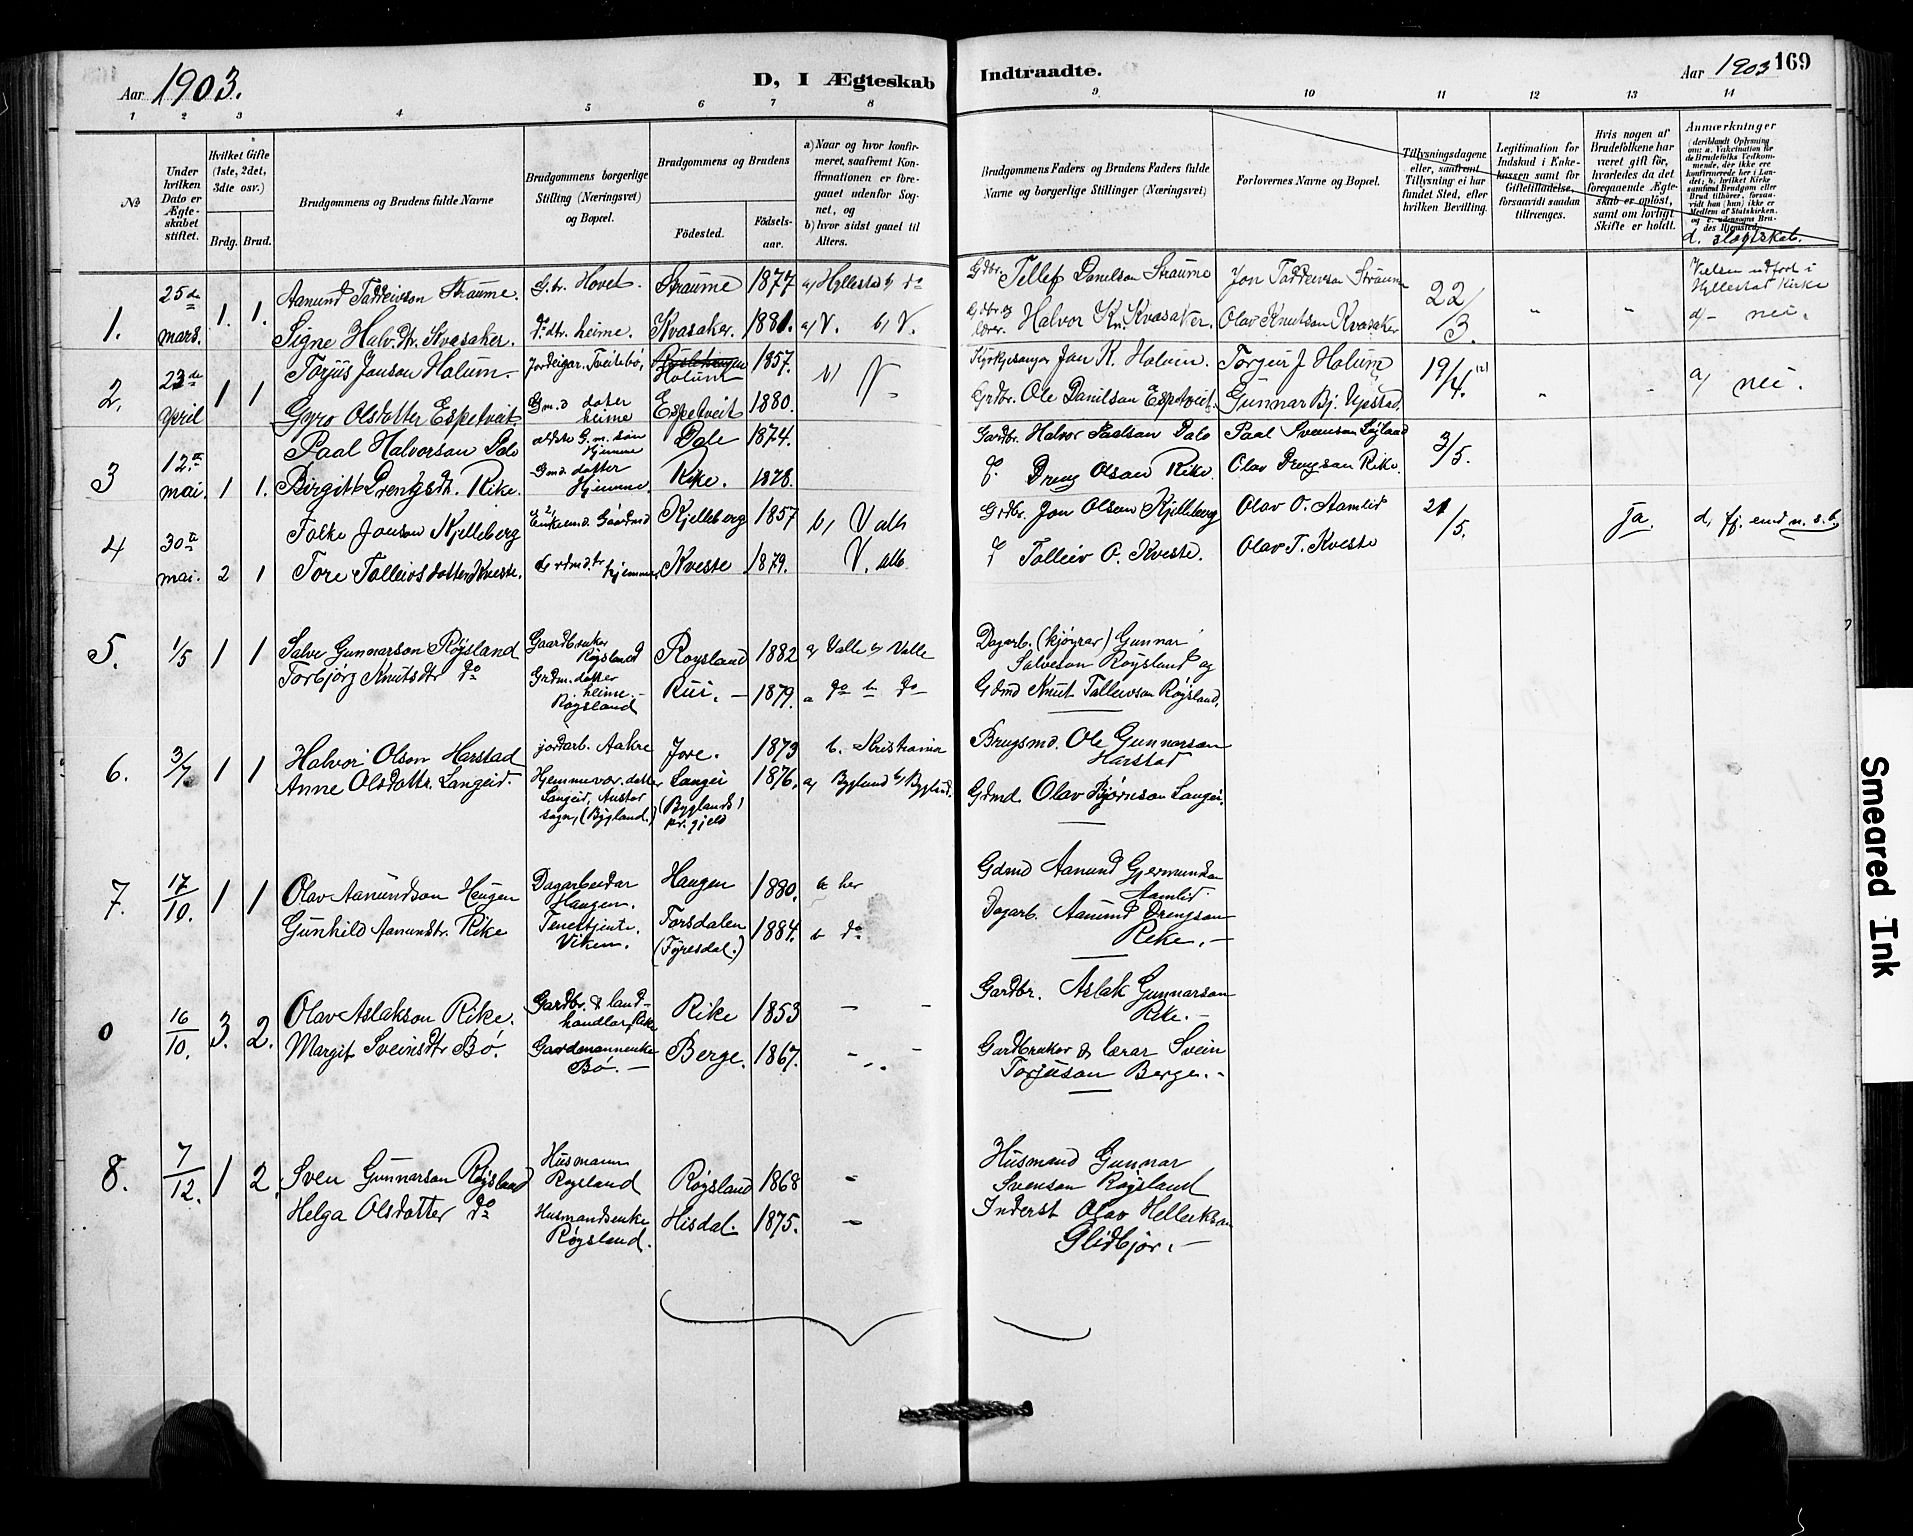 Aar 1903.
D, I Ægteskab
Indtraadte.
Aar 1903 169
1 2 3 4 5 6 7 8 9 10 11 12 13 14
No
Under hvilken Dato er Ægteskabet stiftet.
Hvilket Gifte (1ste, 2det, 3dte osv.)
Brdg. Brud.
Brudgommens og Brudens fulde Navne
Brudgommens borgerlige Stilling (Næringsvei) og Bopæl.
Brudgommens og Brudens
Fødested.
Fødselsaar.
a) Naar og hvor konfirmeret, saafremt Konfirmationen er foregaaet udenfor Sognet, og
b) hvor sidst gaaet til Alters.
Brudgommens Faders og Brudens Faders fulde Navne og borgerlige Stillinger (Næringsvei)
Forlovernes Navne og Bopæl.
Tillysningsdagene eller, saafremt Tillysning ei har fundet Sted, efter hvilken Bevilling.
Legitimation for Indskud i Enkekassen samt for Giftetilladelse, forsaavidt saadan tiltrenges.
Hvis nogen af Brudefolkene har været gift før, hvorledes da det foregaaende Ægteskab er opløst, samt om lovligt Skifte er holdt.
Anmærkninger
d. slægtskab.
1. 25de mars. 1. 1.
Aanund Taddeivson Straume. G.br. Hovet. Straume 1877 a) Hyllestad b) do
Gdbr. Tellef Danielson Straume Jon Taddeivson Straume 22/3.
Vielsen udført i Hyllestad Kirke
Signe Halv.dtr. Kvasaker. G.dtr. heime. Kvasaker. 1881. a) V. b) V.
Gdbr. og lærer. Halvor Kn. Kvasaker. Olav Knutson Kvasaker d - nei.
2. 23de april 1 1
Torjus Jonson Holum. Jordeigar. Tveitebø, Holum 1857. b) V
Kyrkjesangar Jon K. Holum. Torgeir J Holum 19/4. a) nei.
Gyro Olsdotter Espetveit G.m.d dotter heime Espetveit 1880.
Grdbr. Ole Danilson Espetveit. Gunnar Bj. Upstad.
3 12te mai. 1 1.
Paal Halvorson Dale ældste G.m. søn hjemme Dale 1874.
Gardbr. Halvor Paalson Dale Paal Svenson Løyland 3/5.
Birgit Drengsdtr. Rike. Gmd. datter hjemme. Rike. 1878.
Dreng Olson Rike. Olav Drengson Rike.
4 30te mai. 2 1
Folke Jonson Kjelleberg Enkemd. Gaardmd Kjelleberg 1857 b, Valle
Grdbr. Jon Olson Kjelleberg Olav O. Aamlid 21/5. ja.
Tore Tolleivsdotter Kveste. hjemme Kveste 1879. V. alle
Tolleiv O. Kveste. Olav T. Kveste
5. 1/5 1 1
Salve Gunnarson Røysland Gaardbruker Røysland Røysland 1882 a) Valle b) Valle
Dagarb. (kjøyrar) Gunnar Salveson Røysland og
Torbjørg Knutsdtr do Grdm. datter heime. Røysland Rui. 1879. a do b do
Gdmd Knut Tolleivson Røysland.
6. 3/7 1 1
Halvor Olson Harstad jordarb. Aakre Jore. 1873 b. Kristiania
Brugsmd. Ole Gunnarson Harstad
Anne Olsdottr. Langeid. Hjemmevær. datter Langeid, Austad sogn, (Bygland.) Langei (Byglands pr.gjeld 1876. a) Bygland b) Bygland.
Gdmd. Olav Bjørnson Langei.
7. 17/10. 1 1
Olav Aanundson Haugen Dagarbeidar Haugen. Haugen 1880. b her
Gdmd Aanund Gjermundson Aamlid
Gunhild Aanundsdtr. Rike Tenestjente. Viken. Torsdalen (Fyresdal.) 1884. b do
Dagarb. Aanund Drengson Rike.
0 16/10. 3. 2.
Olav Aslakson Rike. Gardbr. & landhandlar, Rike Rike 1853 - -
Gardbr. Aslak Gunnarson Rike.
Margit Sveinsdtr Bø. Gardmannenke Bø. Berge. 1867. - -
Gardbruker & lærar Svein Torjuson Berge.
8. 7/12. 1 2.
Sven Gunnarson Røysland Husmann Røysland Røysland 1868 -
Husmand Gunnar Svenson Røysland
Helga Olsdotter do Husmandsenke Røysland. Hisdal. 1875. -
Inderst Olav Helleikson Glidbjør.
Smeared Ink